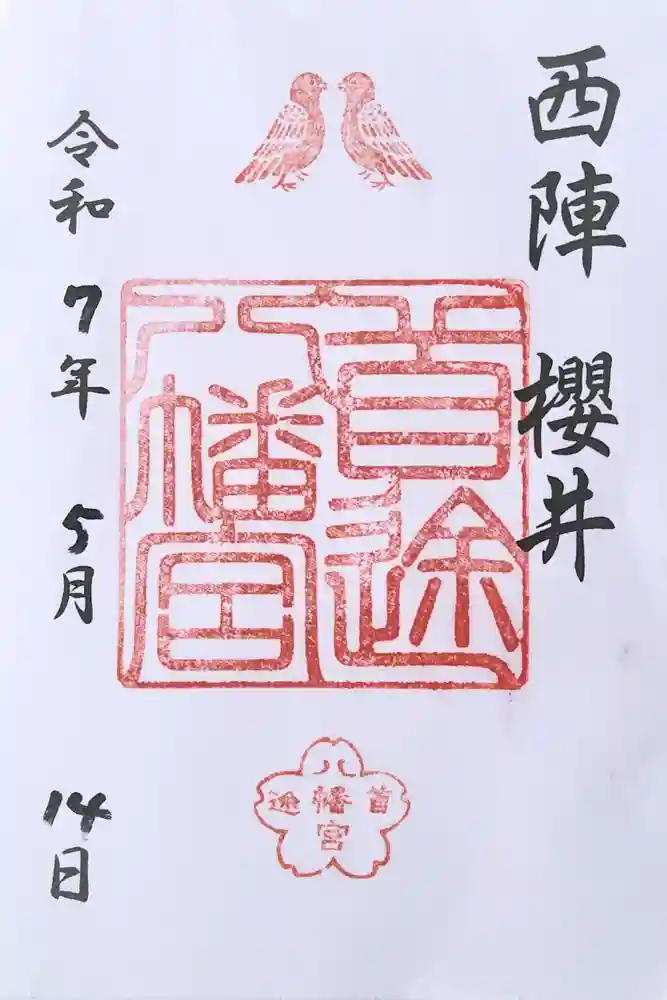 西陣 櫻井
首途
八幡宮
八
首幡途
宮
令和7年5月14日